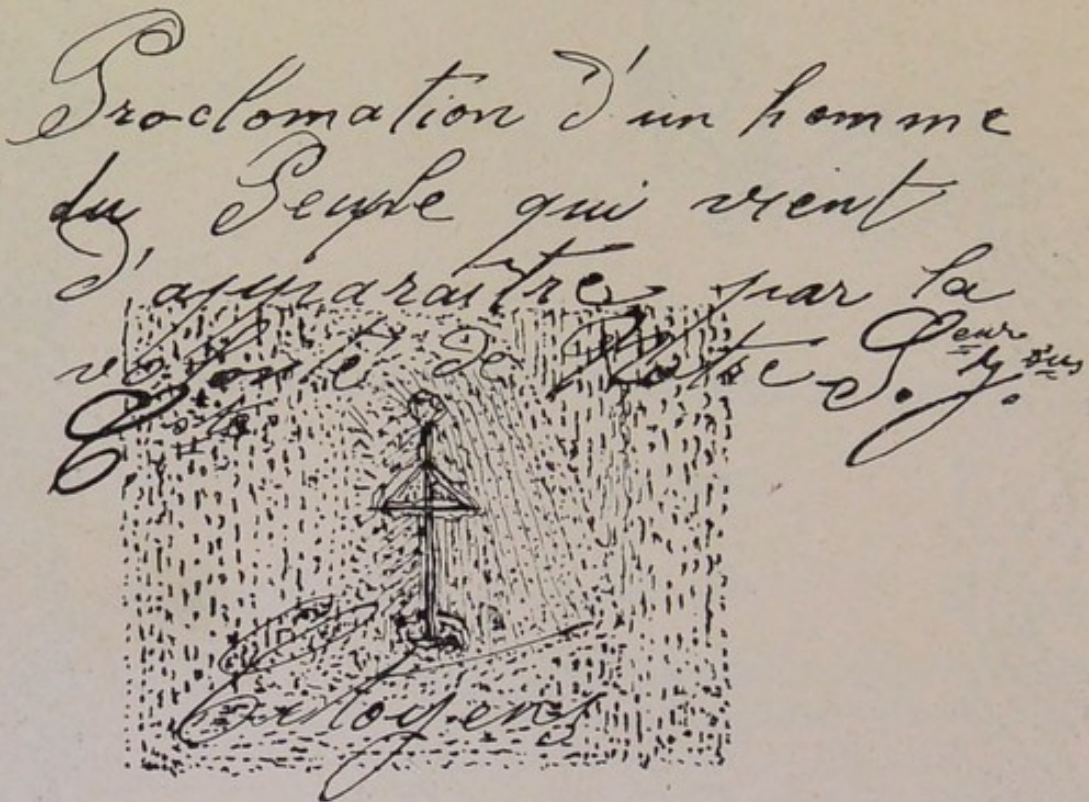 Proclomation d'un homme
du Peuple qui vient
d'apparaître par la
volonté de Notre S.eur J.ésus
Citoyens